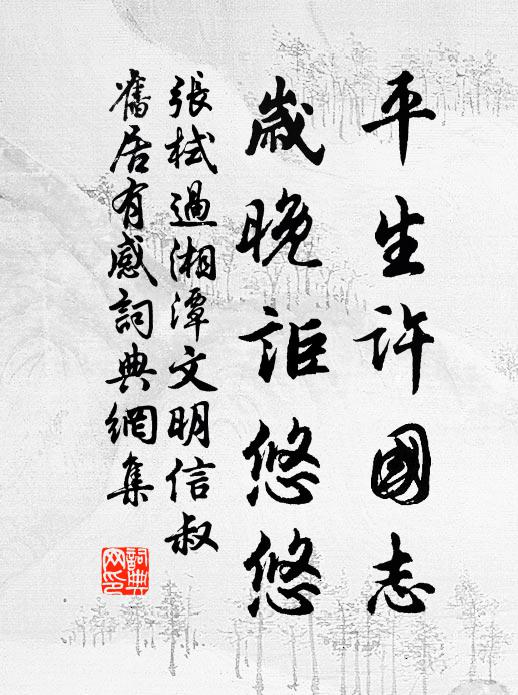 平生許國志
歲晚詎悠悠
張栻過湘潭文明信叔
舊居有感詞典網集
詞典
网印